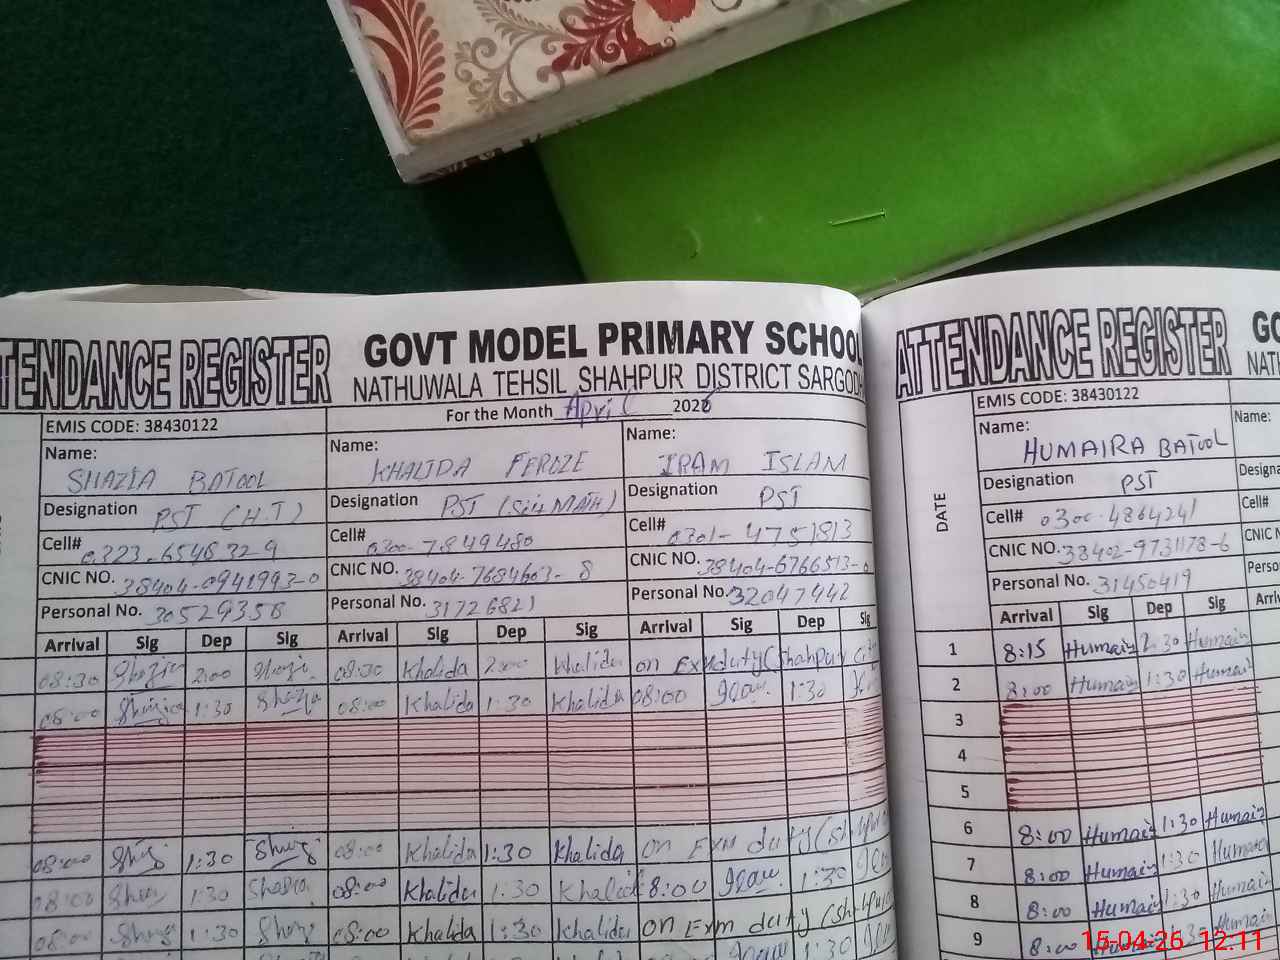 TENDANCE REGISTER
GOVT MODEL PRIMARY SCHOOL
NATHUWALA TEHSIL SHAHPUR DISTRICT SARGOD
EMIS CODE: 38430122
For the Month April 2026
Name: SHAZIA BATOOL
Name: KHALIDA FEROZE
Name: IRAM ISLAM
Designation PST (H.T)
Designation PST
Designation PST
Cell# 0323-6546329
Cell# 0300-7849480
Cell# 0301-4751813
CNIC NO. 38404-0941993-0
CNIC NO. 38404-7684603-8
CNIC NO. 38404-6766513-
Personal No. 30529358
Personal No. 31726821
Personal No. 32047442
Arrival Sig Dep Sig Arrival Sig Dep Sig Arrival Sig Dep Sig
08:30 Shazia 2:00 Shazia 08:30 Khalida 2:00 Khalida on Exm duty (Shahpur
08:00 Shazia 1:30 Shazia 08:00 Khalida 1:30 Khalida 08:00 1:30
08:00 1:30 08:00 Khalida 1:30 Khalida on Exm duty
08:00 1:30 08:00 Khalida 1:30 Khalid 8:00 1:30
08:00 1:30 08:00 Khalida 1:30 Khalida on Exm duty
1:30
ATTENDANCE REGISTER
GO
NATH
EMIS CODE: 38430122
Name:
HUMAIRA BATOOL
Name:
DATE
Designation PST
Designa
Cell# 0300-4864241
Cell#
CNIC NO. 38402-9731178-6
CNIC
Personal No. 31450419
Perso
Arrival Sig Dep Sig Arri
1 8:15 Humair 2:30 Humair
2 8:00 Humair 1:30 Humair
3
4
5
6 8:00 Humair 1:30 Humair
7 8:00 Humair 1:30 Humair
8 8:00 Humair 1:30 Humair
9 8:00 Humair
15-04-26 12:11